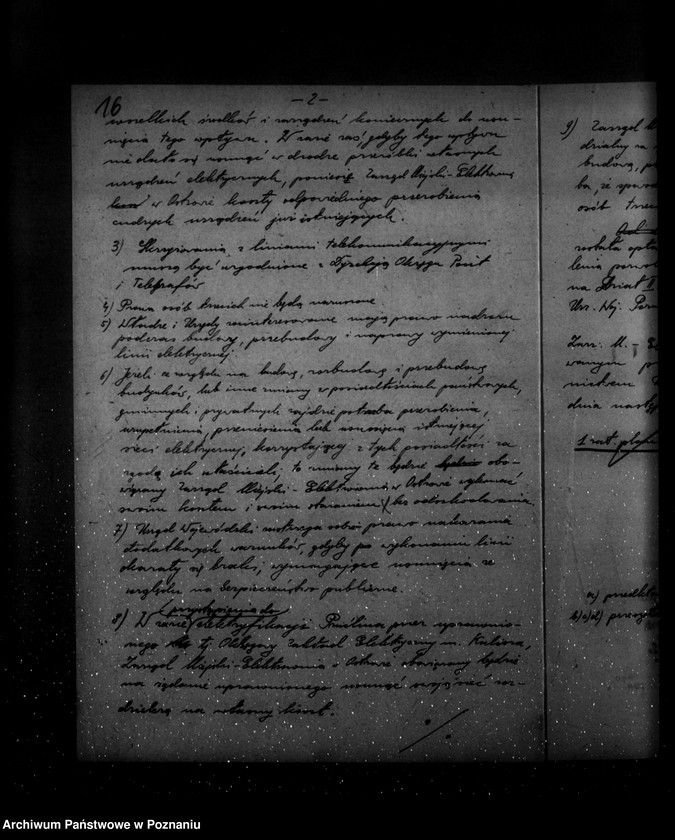 16
— 2 —
wszelkich środków i urządzeń koniecznych do usu-
nięcia tego wpływu. W razie zaś, gdyby tego wpływu
nie dało się usunąć w drodze przeróbki własnych
urządzeń elektrycznych, poniesie Zarząd Miejski-Elektrownia
w Ostrowie koszty odpowiedniego przerobienia
cudzych urządzeń już istniejących.
3) Skrzyżowania z liniami telekomunikacyjnymi
muszą być uzgodnione z Dyrekcją Okręgu Poczt
i Telegrafów
4) Prawa osób trzecich nie będą naruszone.
5) Władze i Urzędy zainteresowane mają prawo nadzoru
podczas budowy, przebudowy i naprawy wymienionej
linii elektrycznej.
6) Jeżeli ze względu na budowę, rozbudowę i przebudowę
budynków, lub inne zmiany w posiadłościach państwowych,
gminnych i prywatnych zajdzie potrzeba przerobienia,
uzupełnienia, przeniesienia lub usunięcia istniejącej
sieci elektrycznej, korzystającej z tych posiadłości za
zgodą ich właścicieli, to zmiany te będzie obo-
wiązany Zarząd Miejski-Elektrownia w Ostrowie wykonać
swoim kosztem i swoim staraniem bez odszkodowania.
7) Urząd Wojewódzki zastrzega sobie prawo nakazania
dodatkowych warunków, gdyby po wykonaniu linii
okazały się braki, wymagające usunięcia ze
względu na bezpieczeństwo publiczne.
(przystąpienia do
8) W razie elektryfikacji Pruślina przez uprawnio-
nego tj. Okręgowy Zakład Elektryczny m. Kalisza,
Zarząd Miejski-Elektrownia w Ostrowie obowiązany będzie
na żądanie uprawnionego usunąć swoją sieć roz-
dzielczą na własny koszt.
9) Zarząd
budową,
osób trzec
robota
na
Urz. Woj. Poz
Zarz. M. -
wanym
dnia
a) przedłoż
b)c)d)
Archiwum Państwowe w Poznaniu